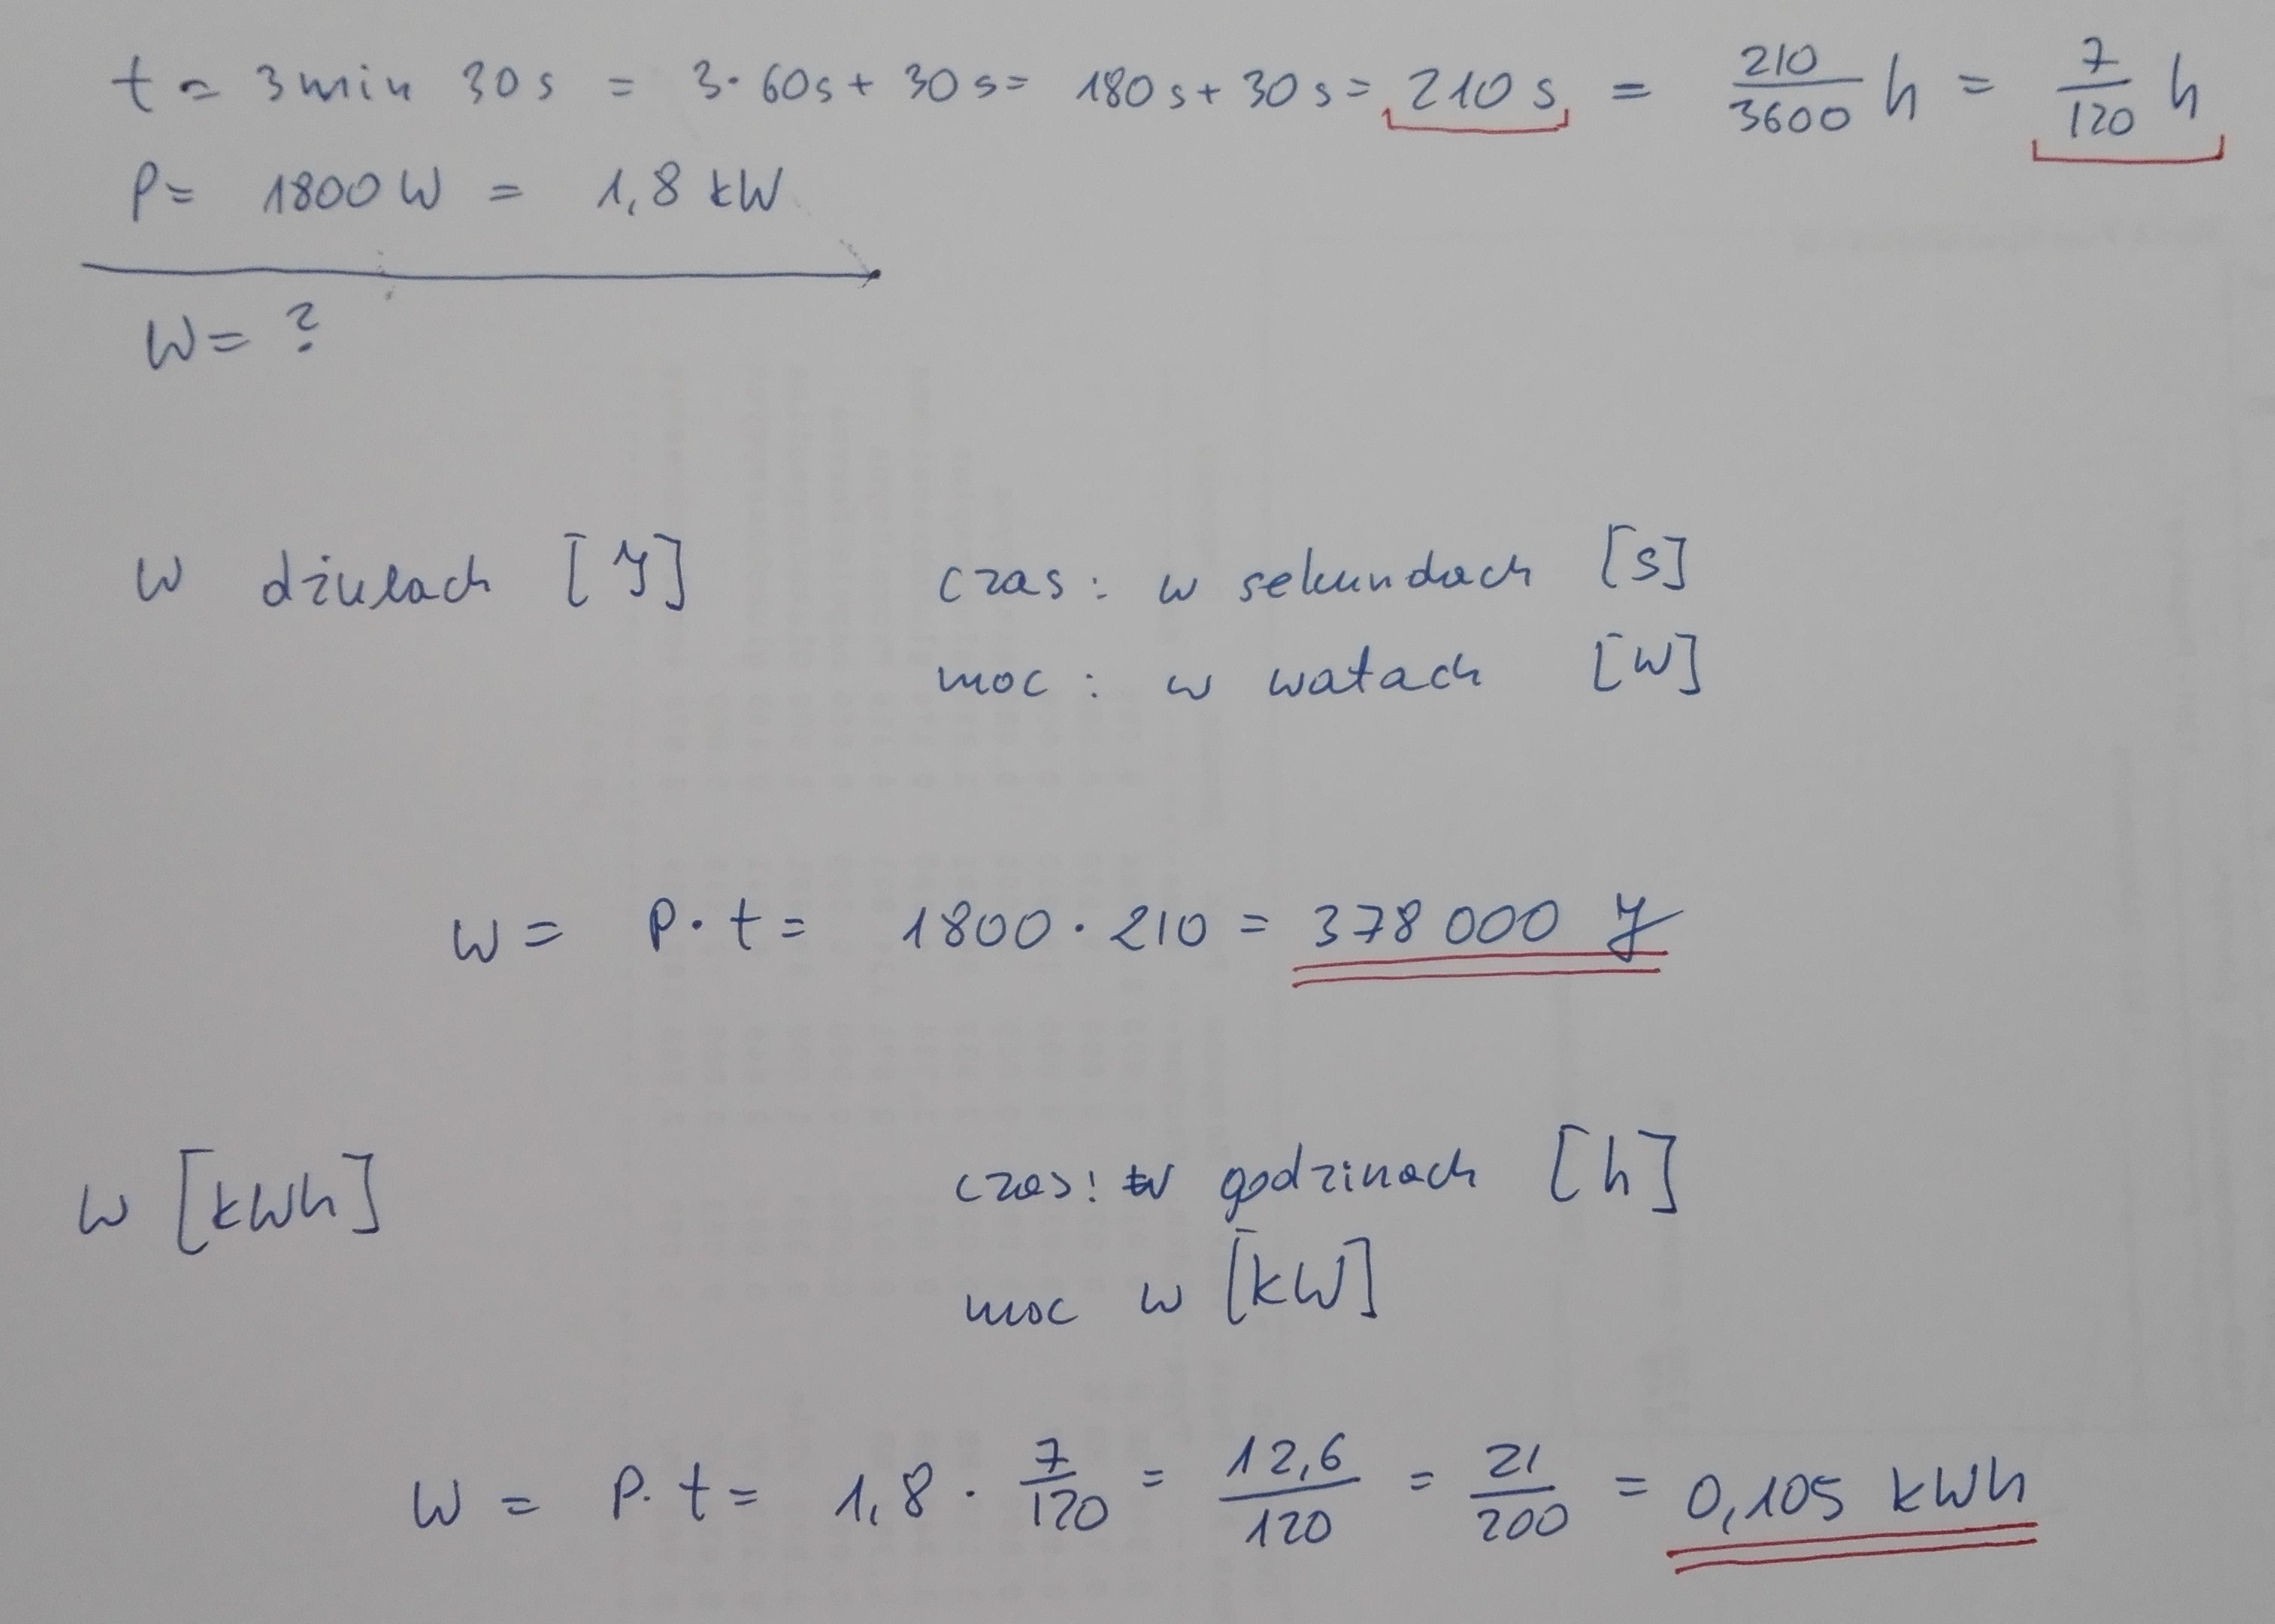 t = 3 min 30 s = 3 · 60 s + 30 s = 180 s + 30 s = 210 s = 210/3600 h = 7/120 h
P = 1800 W = 1,8 kW
W = ?
W dżulach [J] czas : w sekundach [s]
moc : w watach [W]
W = P · t = 1800 · 210 = 378 000 J
W [kWh] czas : w godzinach [h]
moc w [kW]
W = P · t = 1,8 · 7/120 = 12,6/120 = 21/200 = 0,105 kWh